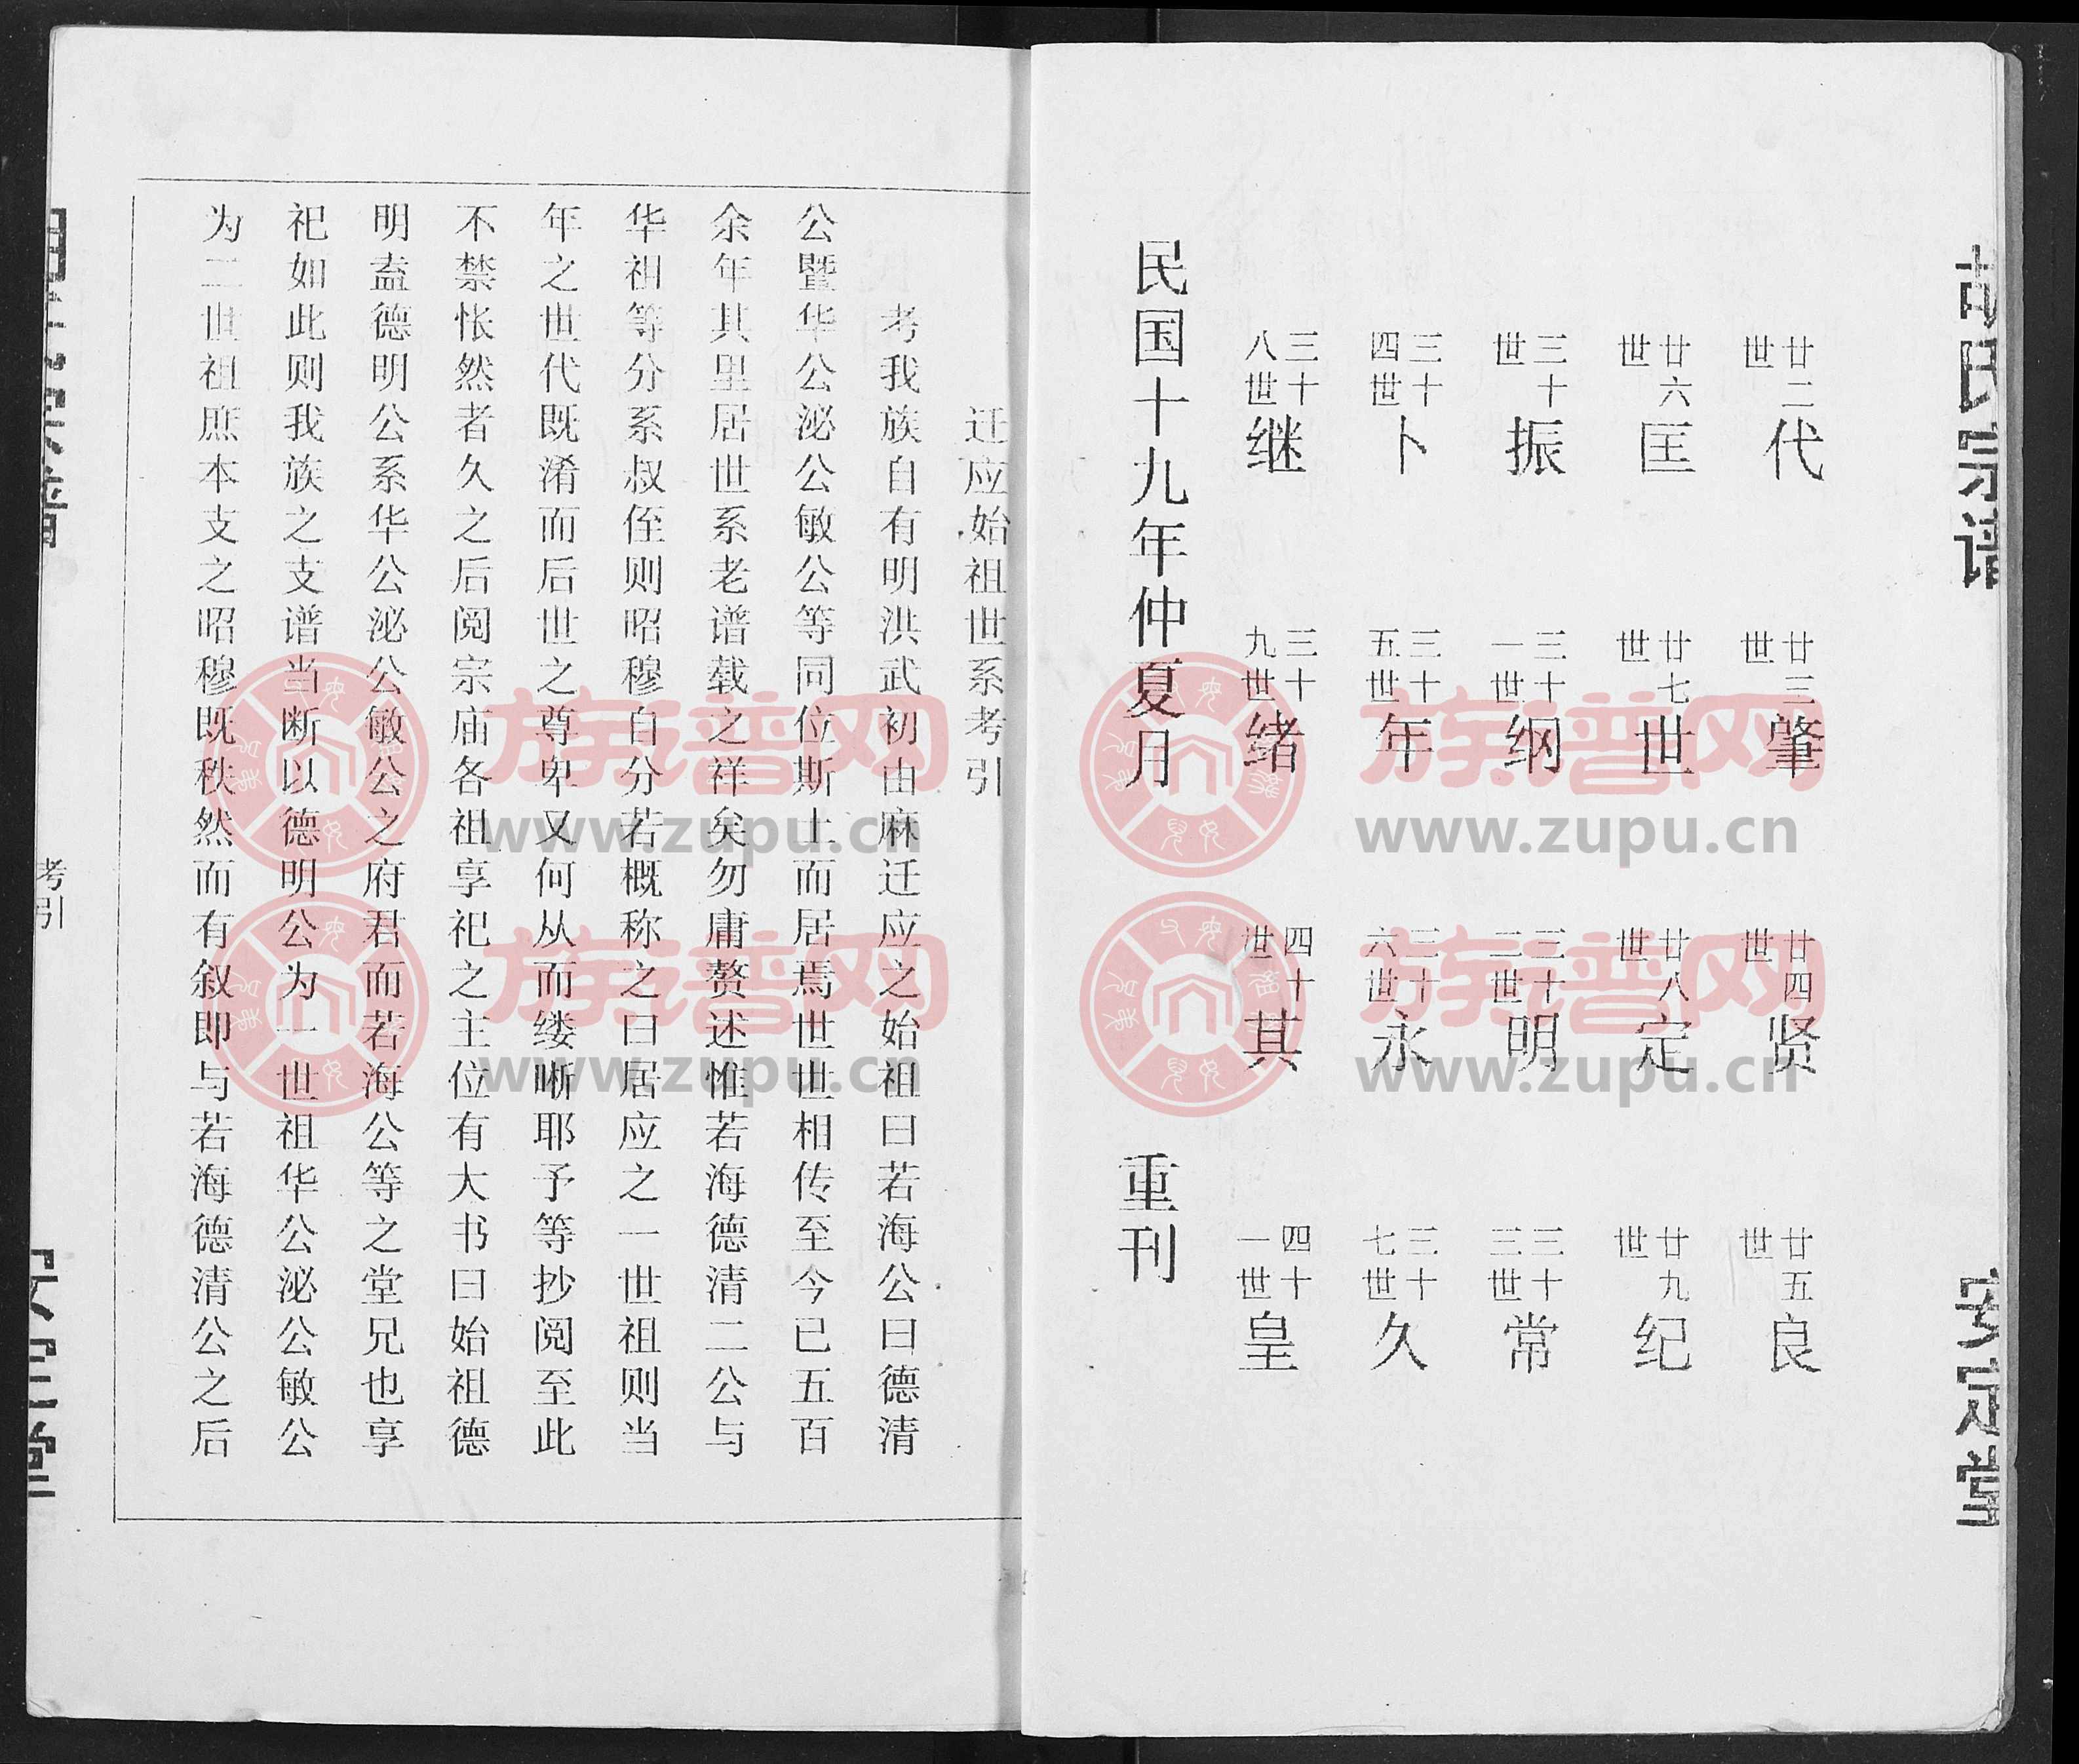 胡氏宗谱
安定堂
廿二世 代
廿三世 肇
廿四世 贤
廿五世 良
廿六世 匡
廿七世 世
廿八世 定
廿九世 纪
三十世 振
三十一世 纲
三十二世 明
三十三世 常
三十四世 卜
三十五世 年
三十六世 永
三十七世 久
三十八世 继
三十九世 绪
四十世 其
四十一世 皇
民国十九年仲夏月 重刊
迁应始祖世系考引
考我族自有明洪武初由麻迁应之始祖曰若海公曰德清
公暨华公泌公敏公等同位斯土而居焉世世相传至今已五百
余年其里居世系老谱载之祥矣勿庸赘述惟若海德清二公与
华祖等分系叔侄则昭穆自分若概称之曰居应之一世祖则当
年之世代既淆而后世之尊卑又何从而缕晰耶予等抄阅至此
不禁怅然者久之后阅宗庙各祖享祀之主位有大书曰始祖德
明盍德明公系华公泌公敏公之府君而若海公等之堂兄也享
祀如此则我族之支谱当断以德明公为一世祖华公泌公敏公
为二世祖庶本支之昭穆既秩然而有叙即与若海德清公之后
胡氏宗谱
考引
安定堂
族谱网
www.zupu.cn
族谱网
www.zupu.cn
族谱网
www.zupu.cn
族谱网
www.zupu.cn